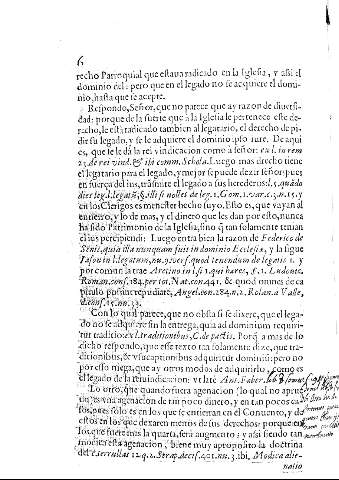 6
recho Parroquial que estaua radicado en la Iglesia, y assi el
dominio del: pero que en el legado no se adquiere el domi-
nio, hasta que se acepte.
Respondo, Señor, que no parece que ay razon de diuersi-
dad: porque de la suerte que à la Iglesia le pertenece este de-
recho, le està radicado tambien al legatario, el derecho de pi-
dir su legado, y se le adquiere el dominio ipso iure. De aqui
es, que le le dà la rei vindicacion como à señor: ex l. in rem
23. de rei vind. & ibi comm. Schola. Luego mas drecho tiene
el legatario para el legado, y mejor se puede dezir señor; pues
en fuerça del ius, trasmite el legado a sus herederos: l. 5. quãdo
dies leg.
en los Clerigos es menester hecho suyo, Esto es, que vayan al
entierro, y lo de mas, y el dinero que les dan por esto, nunca
ha sido Patrimonio de la Iglesia, sino q̃ tan solamente tenian
el ius percipiendi: Luego entra bien la razon de Federico de
Senis, quia illa nunquam fuit in dominio Ecclesiæ, y la sigue
Iason in l. legatum, nu. 9. vers. quod tenendum de legatis 2. y
por comun la trae Aretino in l. si 1. qui hæres, f. 1. Ludouic.
Roman. cons. 184. per tot, Nat. con. 441. & quod onunes de ca
pitulo possint repudiare, Angel. con. 284. n. 2. Rolan. a Valle,
d. cons. 15. nu. 33.
Con lo qual parece, que no obsta si se dixere, que el lega-
do no se adquiere sin la entrega, quia ad dominium requiri-
tur traditio: ex l. traditionibus, C. de pactis. Porq̃ a mas de lo
dicho respondo, que esse texto tan solamente dize, que tra-
ditionibus, & vsucaptionibus adquiritur dominiũ: pero no
por esso niega, que ay otros modos de adquirirlo, como es
el legado de la reiuindicacion: vt late Ant. Faber.
Lo otro, que quando fuera agenacion (lo qual no apru-
es vna agenacion de tan poco dinero, y en tan pocos ca-
sos, pues solo es en los que se entierran en el Conuento, y de
estos en los que dexaren menos de sus derechos: porque en
los que fuere mas la quarta, serà augmento; y assi siendo tan
modica esta agenacion, viene muy aproposito la doctrina
del Zeuallos 12. q. 2.
nu. 3. ibi, Modica alie-
natio